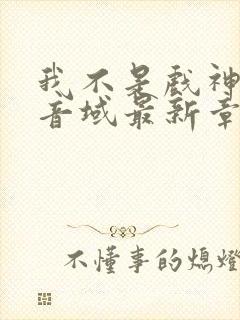 我不是戏神
音域最新章
不懂事的熄燈